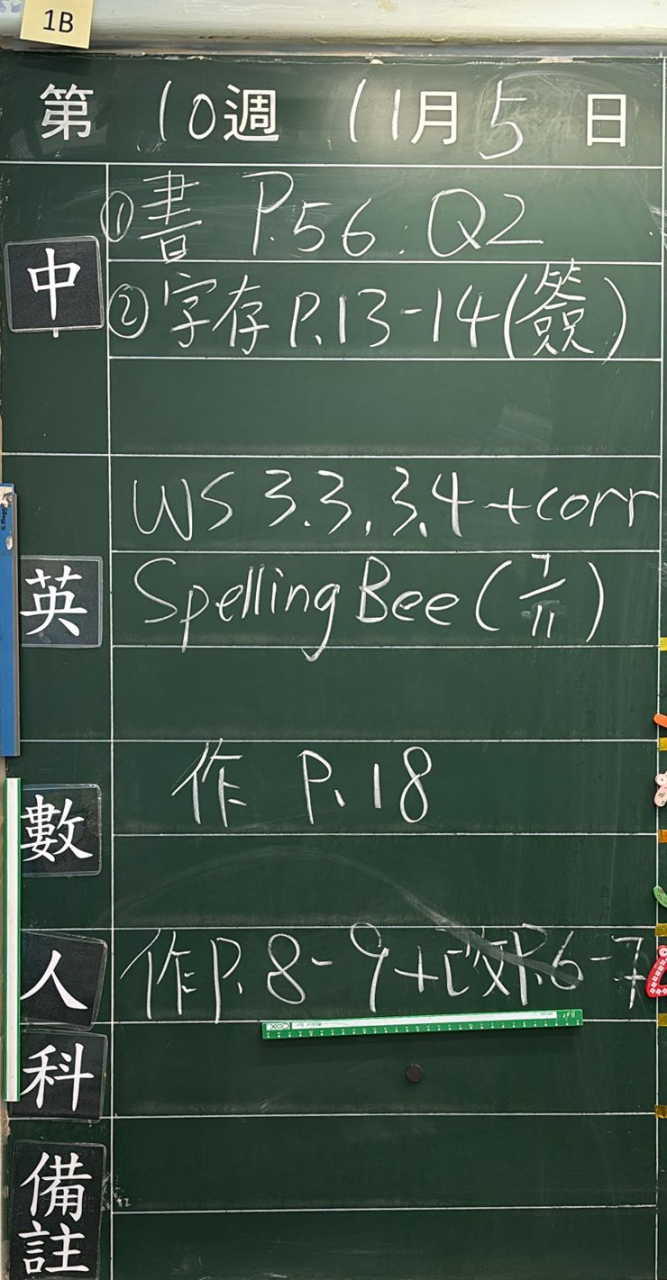 1B
第 10週 11月5日
中
①書 P.56:Q2
②字存 P.13-14(簽)
英
WS 3.3, 3.4 +corr
Spelling Bee (7/11)
數
作 P.18
人
作P.8-9+改P.6-7
科
備註